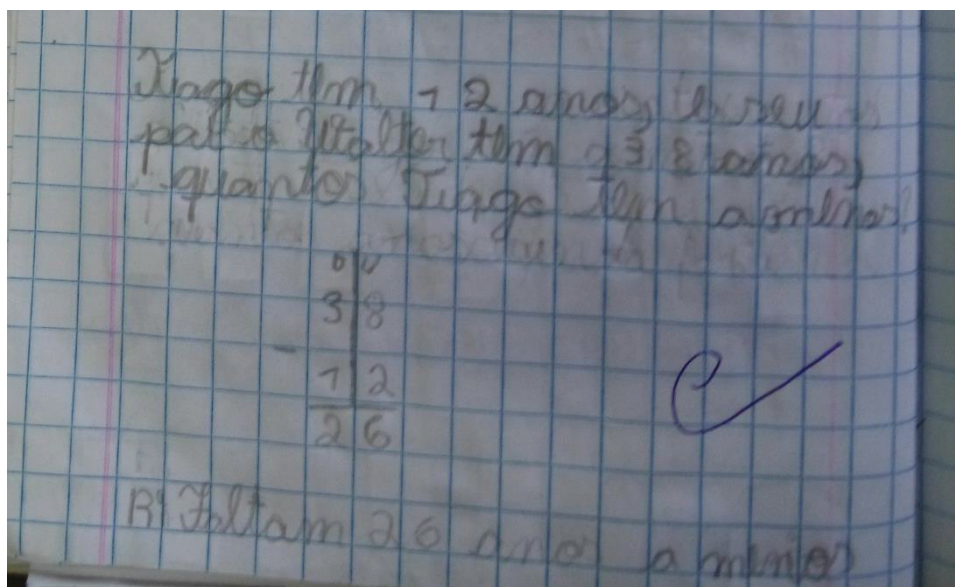 Tiago tem 12 anos, e seu
pai Walter tem 38 anos,
quantos Tiago tem a menos?
D U
3 8
-
1 2
2 6
R: Faltam 26 anos a menos